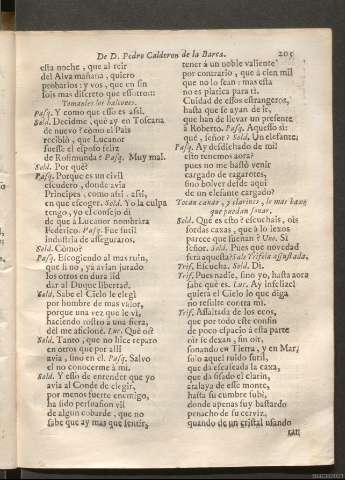 De D. Pedro Calderon de la Barca. 205
esta noche, que al reir
del Alva mañana, quiero
probarlos: y vos, que en fin
sois mas discreto que essotro::
Tomanles los balcones.
Pasq. Y como que esso es assi.
Sold. Decidme, què ay en Toscana
de nuevo? còmo el Pais
recibiò, que Lucanor
fuesse el esposo feliz
de Rosimunda? Pasq. Muy mal.
Sold. Por què?
Pasq. Porque es un civil
escudero, donde avia
Principes, como assi, assi,
en que escoger. Sold. Yo la culpa
tengo, yo el consejo di
de que à Lucanor nombràra
Federico. Pasq. Fue sutil
industria de asseguraros.
Sold. Còmo?
Pasq. Escogiendo al mas ruin,
que si no, yà avian jurado
los otros en dura lid
dar al Duque libertad.
Sold. Sabe el Cielo le elegì
por hombre de mas valor,
porque una vez que le vi,
haciendo rostro à una fiera,
dèl me aficionè. Luc. Què oì?
Sold. Tanto, que no hice reparo
en otros que por allì
avia, sino en èl. Pasq. Salvo
el no conocerme à mi.
Sold. Y esso de entender que yo
avia al Conde de elegir,
por menos fuerte enemigo,
ha sido persuasion vil
de algun cobarde, que no
sabe que ay mas que sentir,
tener à un noble valiente
por contrario, que à cien mil
que no lo sean: mas esta
no es platica para ti.
Cuidad de essos estrangeros,
hasta que se ayan de ir,
que han de llevar un presente
à Roberto. Pasq. Aquesso si:
què, señor? Sold. Un elefante.
Pasq. Ay desdichado de mi!
esto tenemos aora?
pues no me bastò venir
cargado de ragarotes,
sino bolver desde aqui
de un elefante cargado?
Tocan caxas, y clarines, lo mas baxo
que puedan sonar.
Sold. Què es esto? escuchais, ois
sordas caxas, que à lo lexos
parece que suenan? Uno. Si
señor. Sold. Pues què novedad
serà aquesta? Sale Trifela assustada.
Trif. Escucha. Sold. Di.
Trif. Pues nadie, sino yo, hasta aora
sabe què es. Luc. Ay infelice!
quiera el Cielo lo que diga
no resulte contra mi.
Trif. Assaltada de los ecos,
que por todo este confin
de poco espacio à esta parte
oir se dexan, sin oir,
sonando en Tierra, y en Mar,
solo aquel ruido sutil,
que dà escaseada la caxa,
que dà sisado el clarin,
atalaya de esse monte,
hasta su cumbre subì,
donde apenas fuy bastardo
penacho de su cerviz,
quando de un cristal usando